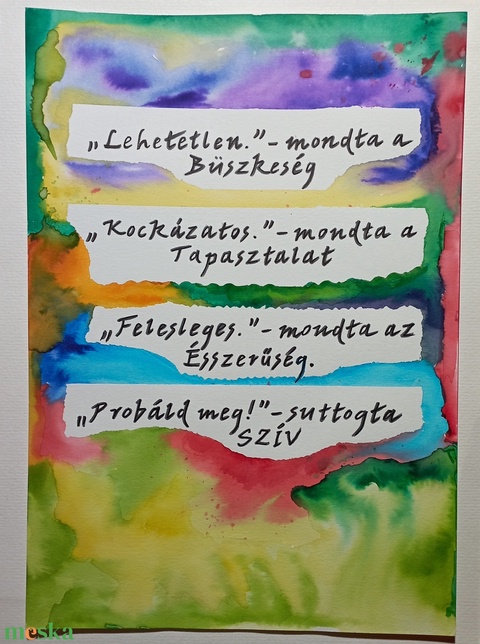 „Lehetetlen.”-mondta a
Büszkeség
„Kockázatos.”-mondta a
Tapasztalat
„Felesleges.”-mondta az
Ésszerűség.
„Probáld meg!”-suttogta
SZÍV
meska